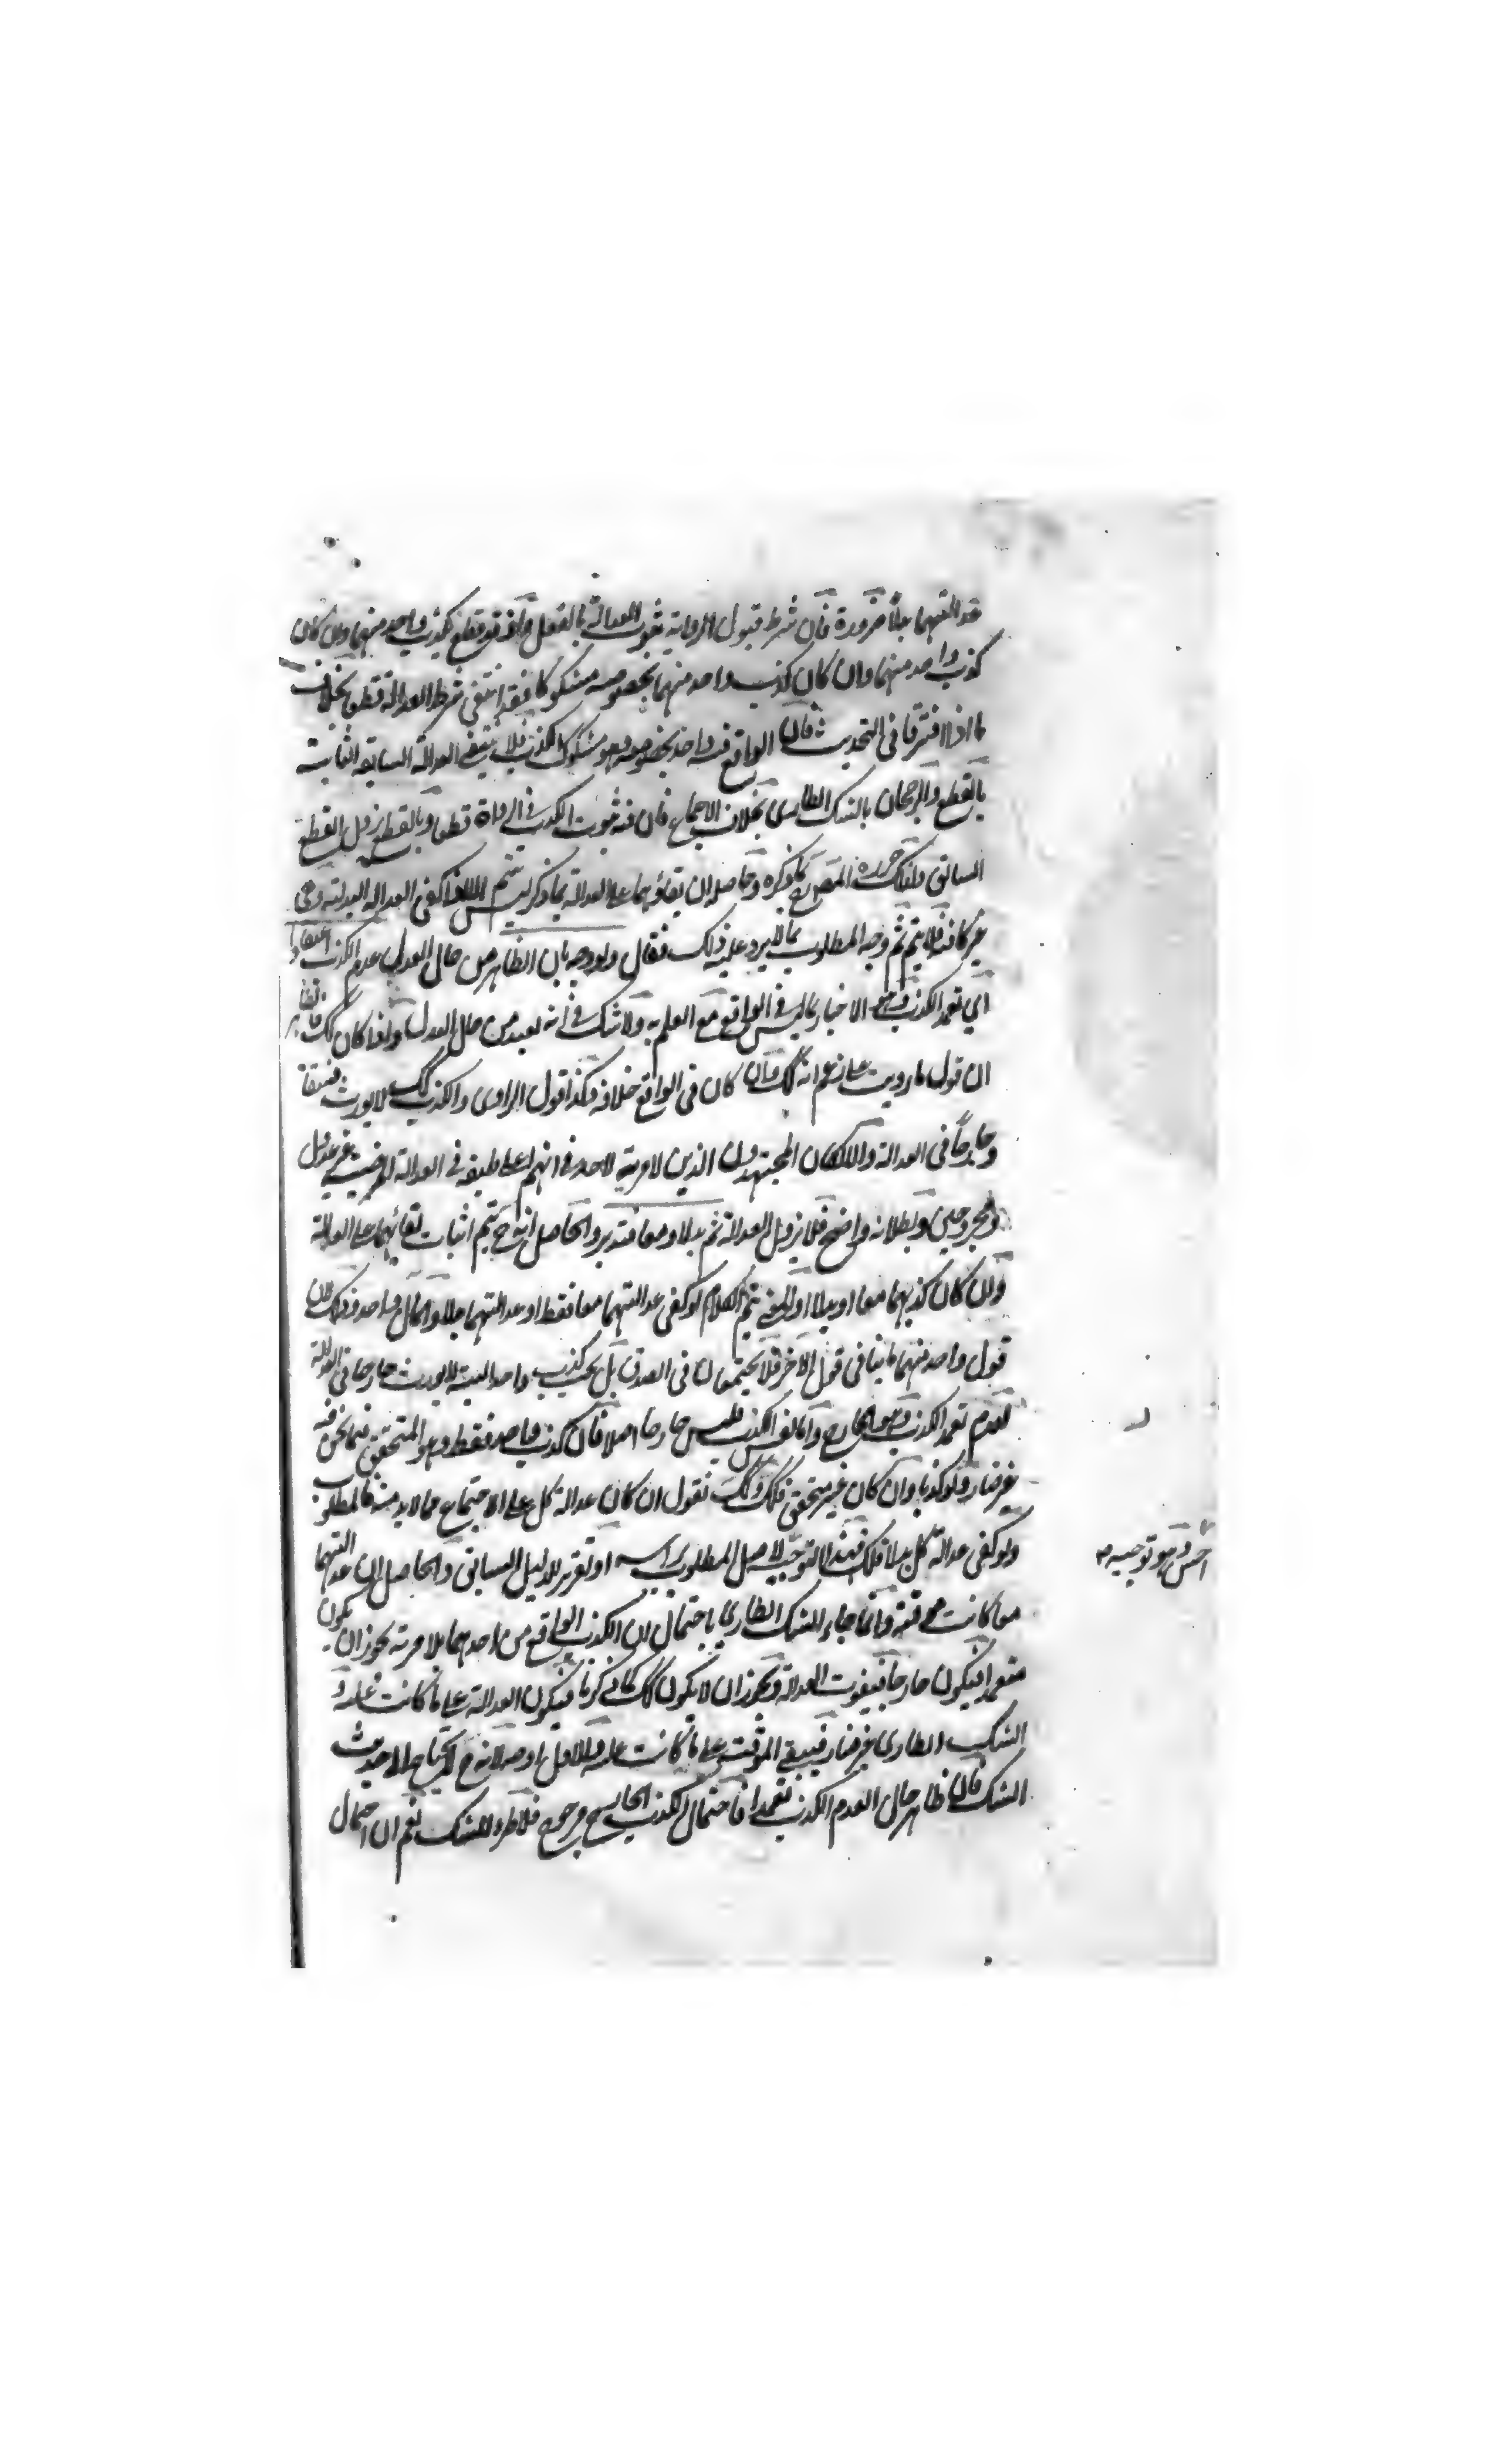 عدالتهما بدلا ضرورة فان شرط قبول الرواية ثبوت العدالة بالفعل واذ قد قطع بكذب واحد منهما وان كان
كذب واحد منهما وان كان كذب واحد منهما بخصوصه مشكوكا فقد انتفى شرط العدالة قطعا بخلاف
ما اذا افترقا فى التحديث فان الواقع فيه واحد بخصوصه وهو مشكوك الكذب فلا ينتفى العدالة السابقة الثابتة
بالقطع والرجحان بالشك الطارى بخلاف الاجماع فان فيه ثبوت الكذب فى الرواة قطعا وبالقطع يزول القطع
السابق ولذلك حرره المصرح كما ذكره وحاصله ان بقاؤهما على العدالة بما ذكر ليس يتم اللهم اذا كفى العدالة البدلية وهى
غير كافية فلا يتم ثم وجه المطلوب بما لا يرد عليه ذلك فقال ولو وجه بان الظاهر من حال العدل عدم الكذب اعتقادا
اى تعمد الكذب وهو الاخبار بما ليس فى الواقع مع العلم به ولا شك فى انه بعيد من حال العدل واذا كان كك
ان قول ما رويت على زعم انه كك وان كان فى الواقع خلافه وكذا قول الراوى والكذب كك لا يورث فسقا
وجارحا فى العدالة والا لكان المجتهدون الذين لا مرية لاحد فى انهم اعلى طبقة فى العدالة المرضية غير عدول
ومجروحين وبطلانه واضح فلا يزول العدالة ثم بدلا ومعا فتدبر والحاصل انه ح يتم اثبات بقائهما على العدالة
وان كان كذبهما معا او بدلا يتم الكلام لو كفى عدالتهما معا فقط او عدالتهما بدلا والمآل واحد وذلك لان
قول واحد منهما ما ينافى قول الآخر فلا يجتمعان فى الصدق بل يجب كذب واحد البتة لا يورث جارحا فى العدالة
لعدم تعمد الكذب وهو الجارح واما نفس الكذب فليس جارحا اصلا فان كذب واحد فقط وهو المتحقق فيما نحن فيه
غير ضار ولو كذبا وان كان غير متحقق فكك ولك نقول ان كان عدالة كل على الاجتماع مما لا بد منه فالمطلوب
ولو كفى عدالة كل بدلا فكك فهذا التوجيه لاصل المطلوب براسه او تقرير للدليل السابق والحاصل ان عدالتهما
معا كانت موقنة وانما جاء الشك الطارى باحتمال ان الكذب الواقع من احدهما بلا مرية يجوز ان يكون
متعمدا فيكون جارحا فيفوت العدالة ويجوز ان لا يكون كك كما ذكرنا فيكون العدالة على ما كانت عليه و
الشك الطارى غير ضار فيبقى المتيقن على ما كانت عليه والاول اوجه لانه ح لا يحتاج الى حديث
الشك فان ظاهر حال العدل عدم الكذب تعمدا فاحتمال الكذب الجارح مرجوح فلا طرو للشك نعم ان احتمال
احسن هو توجيه منه